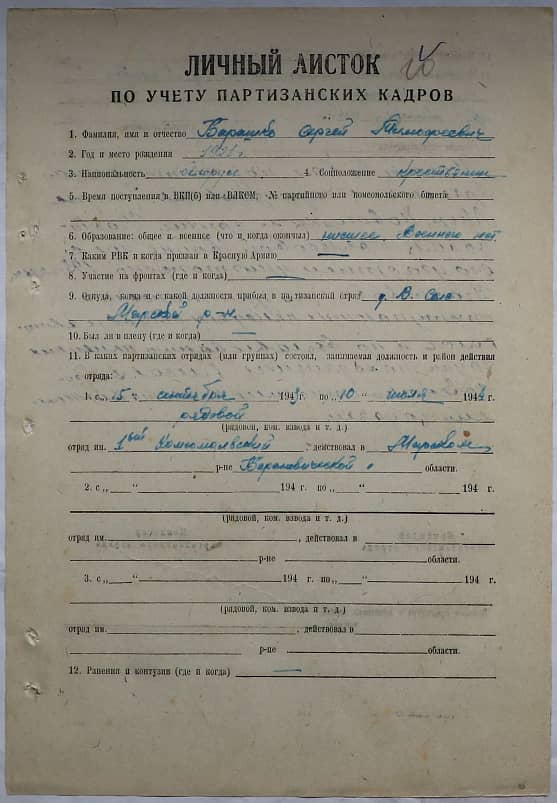 ЛИЧНЫЙ ЛИСТОК
ПО УЧЕТУ ПАРТИЗАНСКИХ КАДРОВ
1. Фамилия, имя и отчество Барашко Сергей Тимофеевич
2. Год и место рождения
3. Национальность белорус 4. Соцположение крестьянин
5. Время поступления в ВКП(б) или ВЛКОМ, № партийного или комсомольского билета
6. Образование: общее и военное (что и когда окончил) низшее Военное нет
7. Каким РВК и когда призван в Красную Армию —
8. Участие на фронтах (где и когда) —
9. Откуда, когда и с какой должности прибыл в партизанский отряд д. В. Село
Мирский р-н.
10. Был ли в плену (где и когда) —
11. В каких партизанских отрядах (или группах) состоял, занимаемая должность и район действия
отряда:
1. с 15 сентября 1943 г. по 10 июля 1944 г.
рядовой
(рядовой, ком. взвода и т. д.)
отряд им. 1ый Комсомольский действовал в Мирском
р-не Барановичской области.
2. с „ “ 194 г. по „ “ 194 г.
(рядовой, ком. взвода и т. д.)
отряд им. , действовал в
р-не области.
3. с „ “ 194 г. по „ “ 194 г.
(рядовой, ком. взвода и т. д.)
отряд им. , действовал в
р-не области.
12. Ранения и контузии (где и когда) —